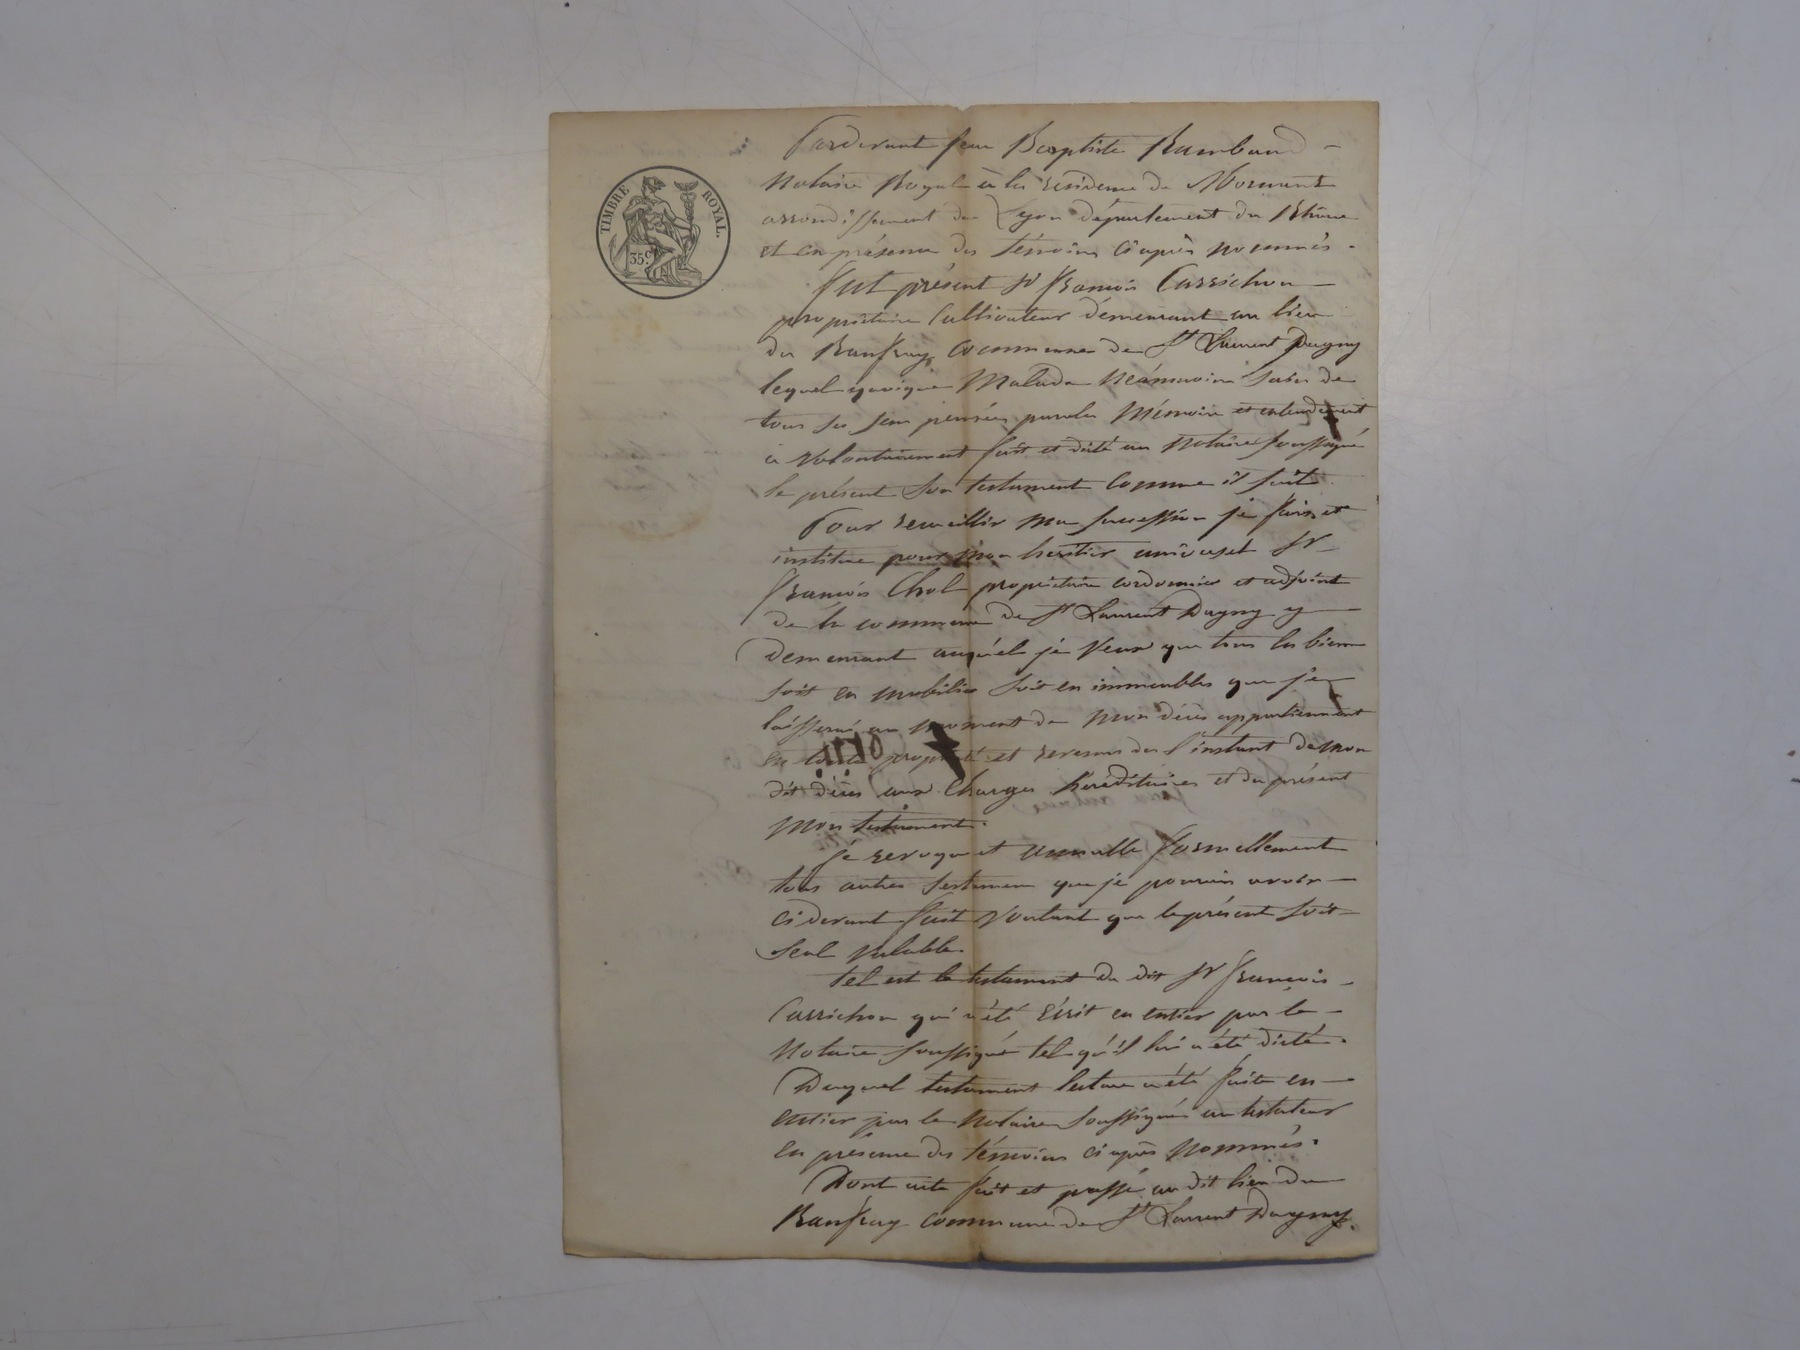 TIMBRE ROYAL.
35 c.
Pardevant Jean Baptiste Rambaud
Notaire Royal à la résidence de Mornant
arrondissement de Lyon département du Rhône
et en présence des témoins ci après nommés.
fut présent Sr françois Carrichon
propriétaire Cultivateur demeurant au lieu
du commune de St Laurent Dagny
lequel quoique Malade Néanmoins sain de
tous ses sens pensées paroles Mémoire et entendement
a volontairement fait et dicté au Notaire soussigné
le présent son testament Comme il suit.
Pour recueillir ma succession je fais et
institue pour mon héritier universel Sr
françois Chol propriétaire cordonnier et adjoint
de la commune de St Laurent Dagny y
Demeurant auquel je Veux que tous les biens
soit en mobilier soit en immeubles que je
laisserai au moment de mon décès appartiennent
en toute propriété et revenus dès l'instant de mon
dit décès aux Charges héréditaires et du présent
mon testament.
Je revoque et annulle formellement
tous autres testamens que je pourrais avoir
ci devant fait Voulant que le présent soit
seul valable.
tel est le testament du dit Sr françois
Carrichon qui a été écrit en entier par le
Notaire soussigné tel qu'il lui a été dicté.
Duquel testament lecture a été faite en
entier par le Notaire soussigné au testateur
en présence des témoins ci après nommés.
Dont acte fait et passé au dit lieu du
commune de St Laurent Dagny.